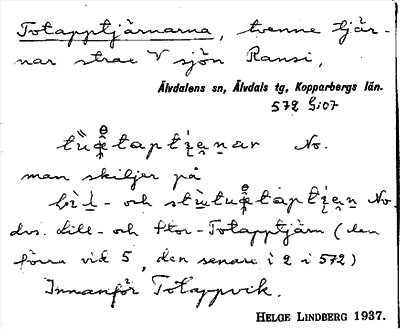 Totapptjärnarna, tvenne tjär-
nar strax V sjön Ransi,
Älvdalens sn, Älvdals tg, Kopparbergs län.
572 Gi07
No.
man skiljer på
- och No.
dvs. Lill- och Stor-Totapptjärn (den
förra vid 5, den senare i 2 i 572)
Innanför Totappvik.
HELGE LINDBERG 1937.